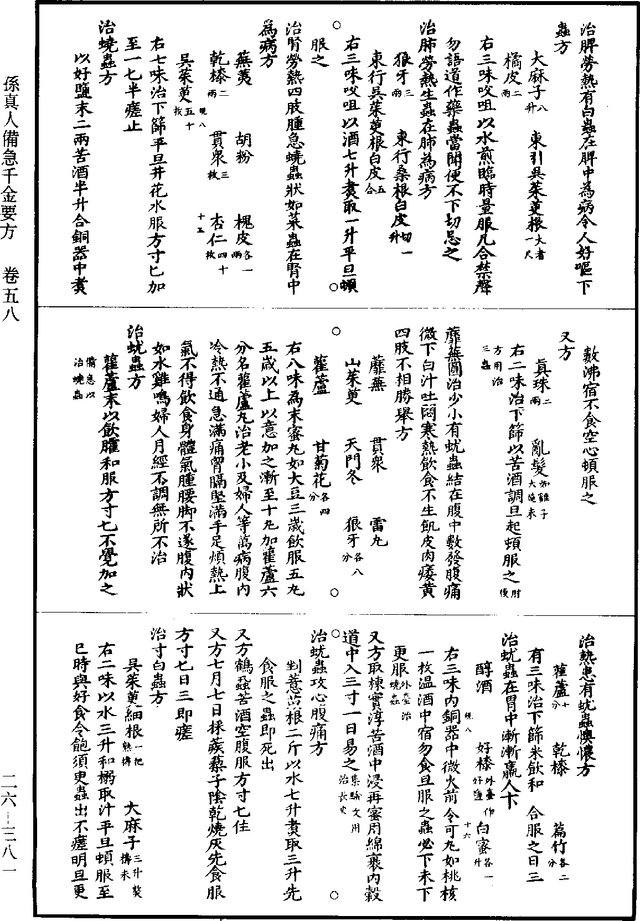 孫真人備急千金要方　卷五八
治脾勞熱有白蟲在脾中為病令人好嘔下
蟲方
大麻子八升　東引吳茱萸根大者一尺
橘皮二兩
右三味㕮咀以水煎臨時量服凡合禁聲
勿語道作藥蟲當聞便不下切忌之
治肺勞熱生蟲在肺為病方
狼牙三兩　東行桑根白皮切一升
東行吳茱萸根白皮五合
右三味㕮咀以酒七升煮取一升平旦頓
服之
治腎勞熱四肢腫急蟯蟲狀如菜蟲在腎中
為病方
蕪荑　胡粉　槐皮各一兩
乾漆二兩　貫眾三枚　杏仁四十枚
吳茱萸五十枚
右七味治下篩平旦井花水服方寸匕加
至一匕半瘥止
治蟯蟲方
以好鹽末二兩苦酒半升合銅器中煮
數沸宿不食空心頓服之
又方
真珠二兩　亂髮如雞子大燒末
右二味治下篩以苦酒調旦起頓服之
蘼蕪圓治少小有蛕蟲結在腹中數發腹痛
微下白汁吐悶寒熱飲食不生肌皮肉痿黃
四肢不相勝舉方
蘼蕪　貫眾　雷丸
山茱萸　天門冬　狼牙各八分
雚蘆　甘菊花各四分
右八味為末蜜丸如大豆三歲飲服五丸
五歲以上以意加之漸至十九加雚蘆六
分名雚蘆丸治老小及婦人等萬病腹內
冷熱不通急滿痛胷膈堅滿手足煩熱上
氣不得飲食身體氣腫腰腳不遂腹內狀
如水雞鳴婦人月經不調無所不治
治蛕蟲方
雚蘆末以飲臛和服方寸匕不覺加之
備急以治蟯蟲
治熱患有蛕蟲懊憹方
雚蘆十分　乾漆　萹竹各二分
有三味治下篩米飲和　合服之日三
治蛕蟲在胃中漸漸羸人方
醇酒　好漆　白蜜各一升
右三味內銅器中微火煎令可丸如桃核
一枚溫酒中宿勿食旦服之蟲必下未下
更服外臺治蟯蟲
又方取楝實淳苦酒中浸再宿用綿裹內穀
道中入三寸一日易之集驗文用治長虫
治蛕蟲攻心腹痛方
剉薏苡根二斤以水七升煮取三升先
食服之蟲即死出
又方鶴蝨苦酒空腹服方寸匕佳
又方七月七日採蒺藜子陰乾燒灰先食服
方寸匕日三即瘥
治寸白蟲方
吳茱萸細根一把熟擣　大麻子三升熬擣末
右二味以水三升和搦取汁平旦頓服至
巳時與好食令飽須臾蟲出不瘥明旦更
二六—三八一